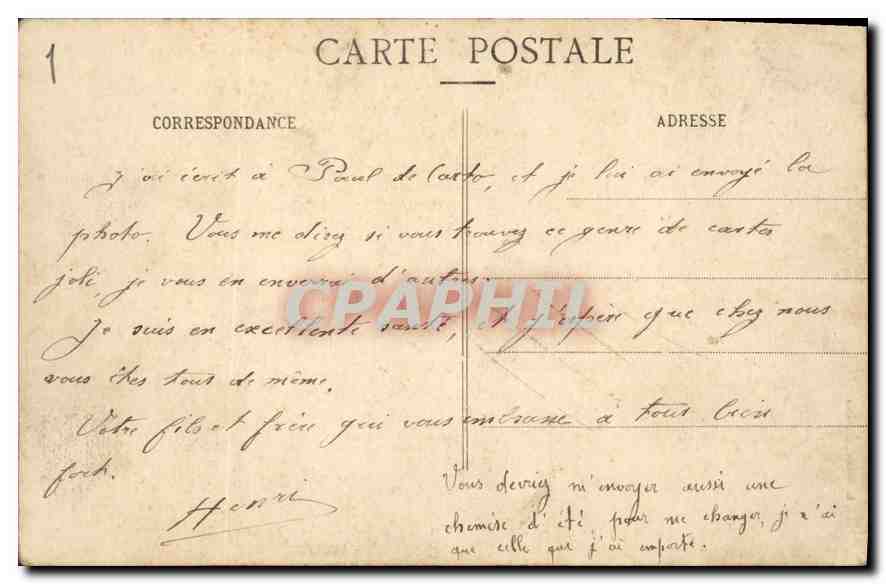 1
CARTE POSTALE
CORRESPONDANCE
ADRESSE
J'ai écrit à Paul de Carto, et je lui ai envoyé la
photo. Vous me direz si vous trouvez ce genre de cartes
joli, je vous en enverrai d'autres.
Je suis en excellente santé, et j'espère que chez nous
vous êtes tous de même.
Votre fils et frère qui vous embrasse à tous bien
fort.
Henri
Vous devriez m'envoyer aussi une
chemise d'été pour me changer, je n'ai
que celle que j'ai emporté.
CPAPHIL